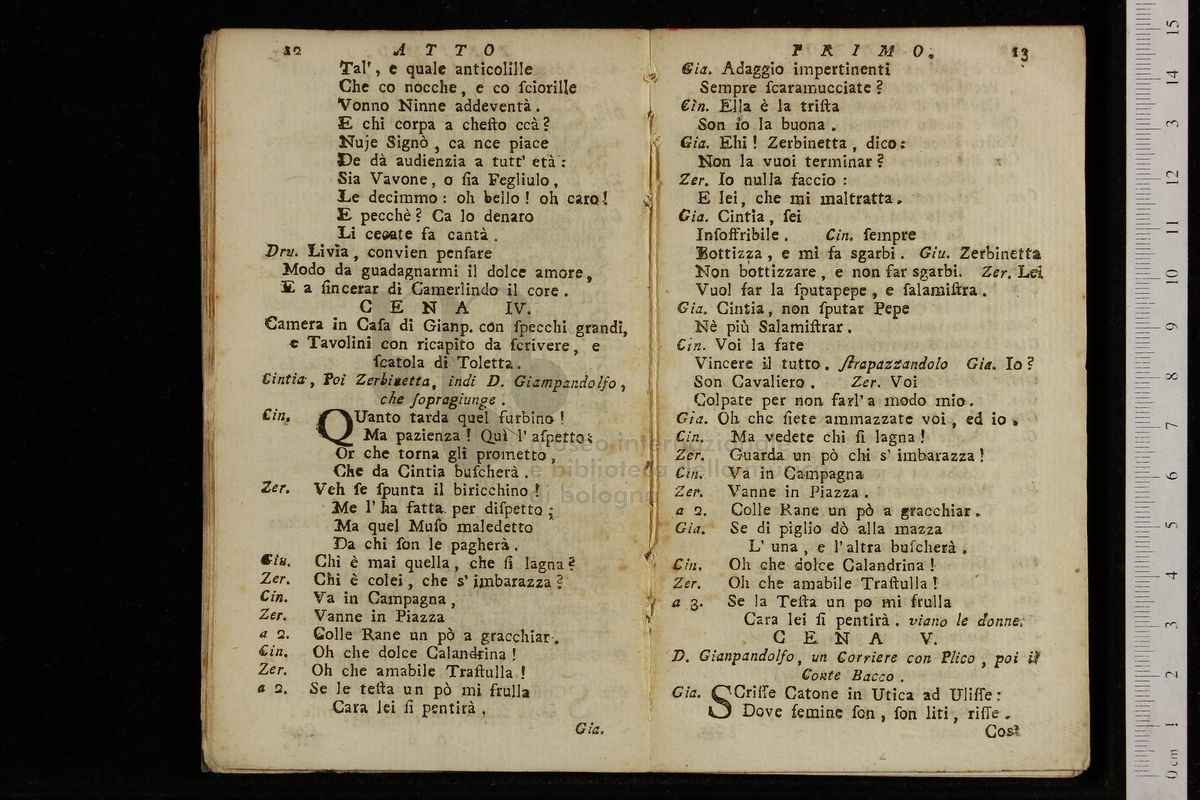 12 ATTO
Tal', e quale anticolille
Che co nocche, e co ſciorille
Vonno Ninne addeventà.
E chi corpa a cheſto ccà?
Nuje Signò, ca nce piace
De dà audienzia a tutt' età:
Sia Vavone, o ſia Fegliulo,
Le decimmo: oh bello! oh caro!
E pecchè? Ca lo denaro
Li cecate fa cantà.
Dru. Livia, convien penſare
Modo da guadagnarmi il dolce amore,
E a ſincerar di Camerlindo il core.
CENA IV.
Camera in Caſa di Gianp. con ſpecchi grandi,
e Tavolini con ricapito da ſcrivere, e
ſcatola di Toletta.
Cintia, Poi Zerbinetta, indi D. Giampandolfo,
che ſopragiunge.
Cin. QUanto tarda quel furbino!
Ma pazienza! Quì l' aſpetto;
Or che torna gli prometto,
Che da Cintia buſcherà.
Zer. Veh ſe ſpunta il biricchino!
Me l' ha fatta per diſpetto;
Ma quel Muſo maledetto
Da chi ſon le pagherà.
Giu. Chi è mai quella, che ſi lagna?
Zer. Chi è colei, che s' imbarazza?
Cin. Va in Campagna,
Zer. Vanne in Piazza
a 2. Colle Rane un pò a gracchiar.
Cin. Oh che dolce Calandrina!
Zer. Oh che amabile Traſtulla!
a 2. Se le teſta un pò mi frulla
Cara lei ſi pentirà.
Gia.
PRIMO. 13
Gia. Adaggio impertinenti
Sempre ſcaramucciate?
Cin. Ella è la triſta
Son io la buona.
Gia. Ehi! Zerbinetta, dico:
Non la vuoi terminar?
Zer. Io nulla faccio:
E lei, che mi maltratta.
Gia. Cintia, ſei
Inſoffribile. Cin. ſempre
Bottizza, e mi fa sgarbi. Giu. Zerbinetta
Non bottizzare, e non far sgarbi. Zer. Lei
Vuol far la ſputapepe, e ſalamiſtra.
Gia. Cintia, non ſputar Pepe
Nè più Salamiſtrar.
Cin. Voi la fate
Vincere il tutto. ſtrapazzandolo Gia. Io?
Son Cavaliero. Zer. Voi
Colpate per non farl' a modo mio.
Gia. Oh che ſiete ammazzate voi, ed io.
Cin. Ma vedete chi ſi lagna!
Zer. Guarda un pò chi s' imbarazza!
Cin. Va in Campagna
Zer. Vanne in Piazza.
a 2. Colle Rane un pò a gracchiar.
Gia. Se di piglio dò alla mazza
L' una, e l' altra buſcherà.
Cin. Oh che dolce Calandrina!
Zer. Oh che amabile Traſtulla!
a 3. Se la Teſta un po mi frulla
Cara lei ſi pentirà. viano le donne.
CENA V.
D. Gianpandolfo, un Corriere con Plico, poi il
Conte Bacco.
Gia. SCriſſe Catone in Utica ad Uliſſe:
Dove femine ſon, ſon liti, riſſe.
Così
museo internazionale
e biblioteca della musica
di bologna
0 cm 1 2 3 4 5 6 7 8 9 10 11 12 13 14 15